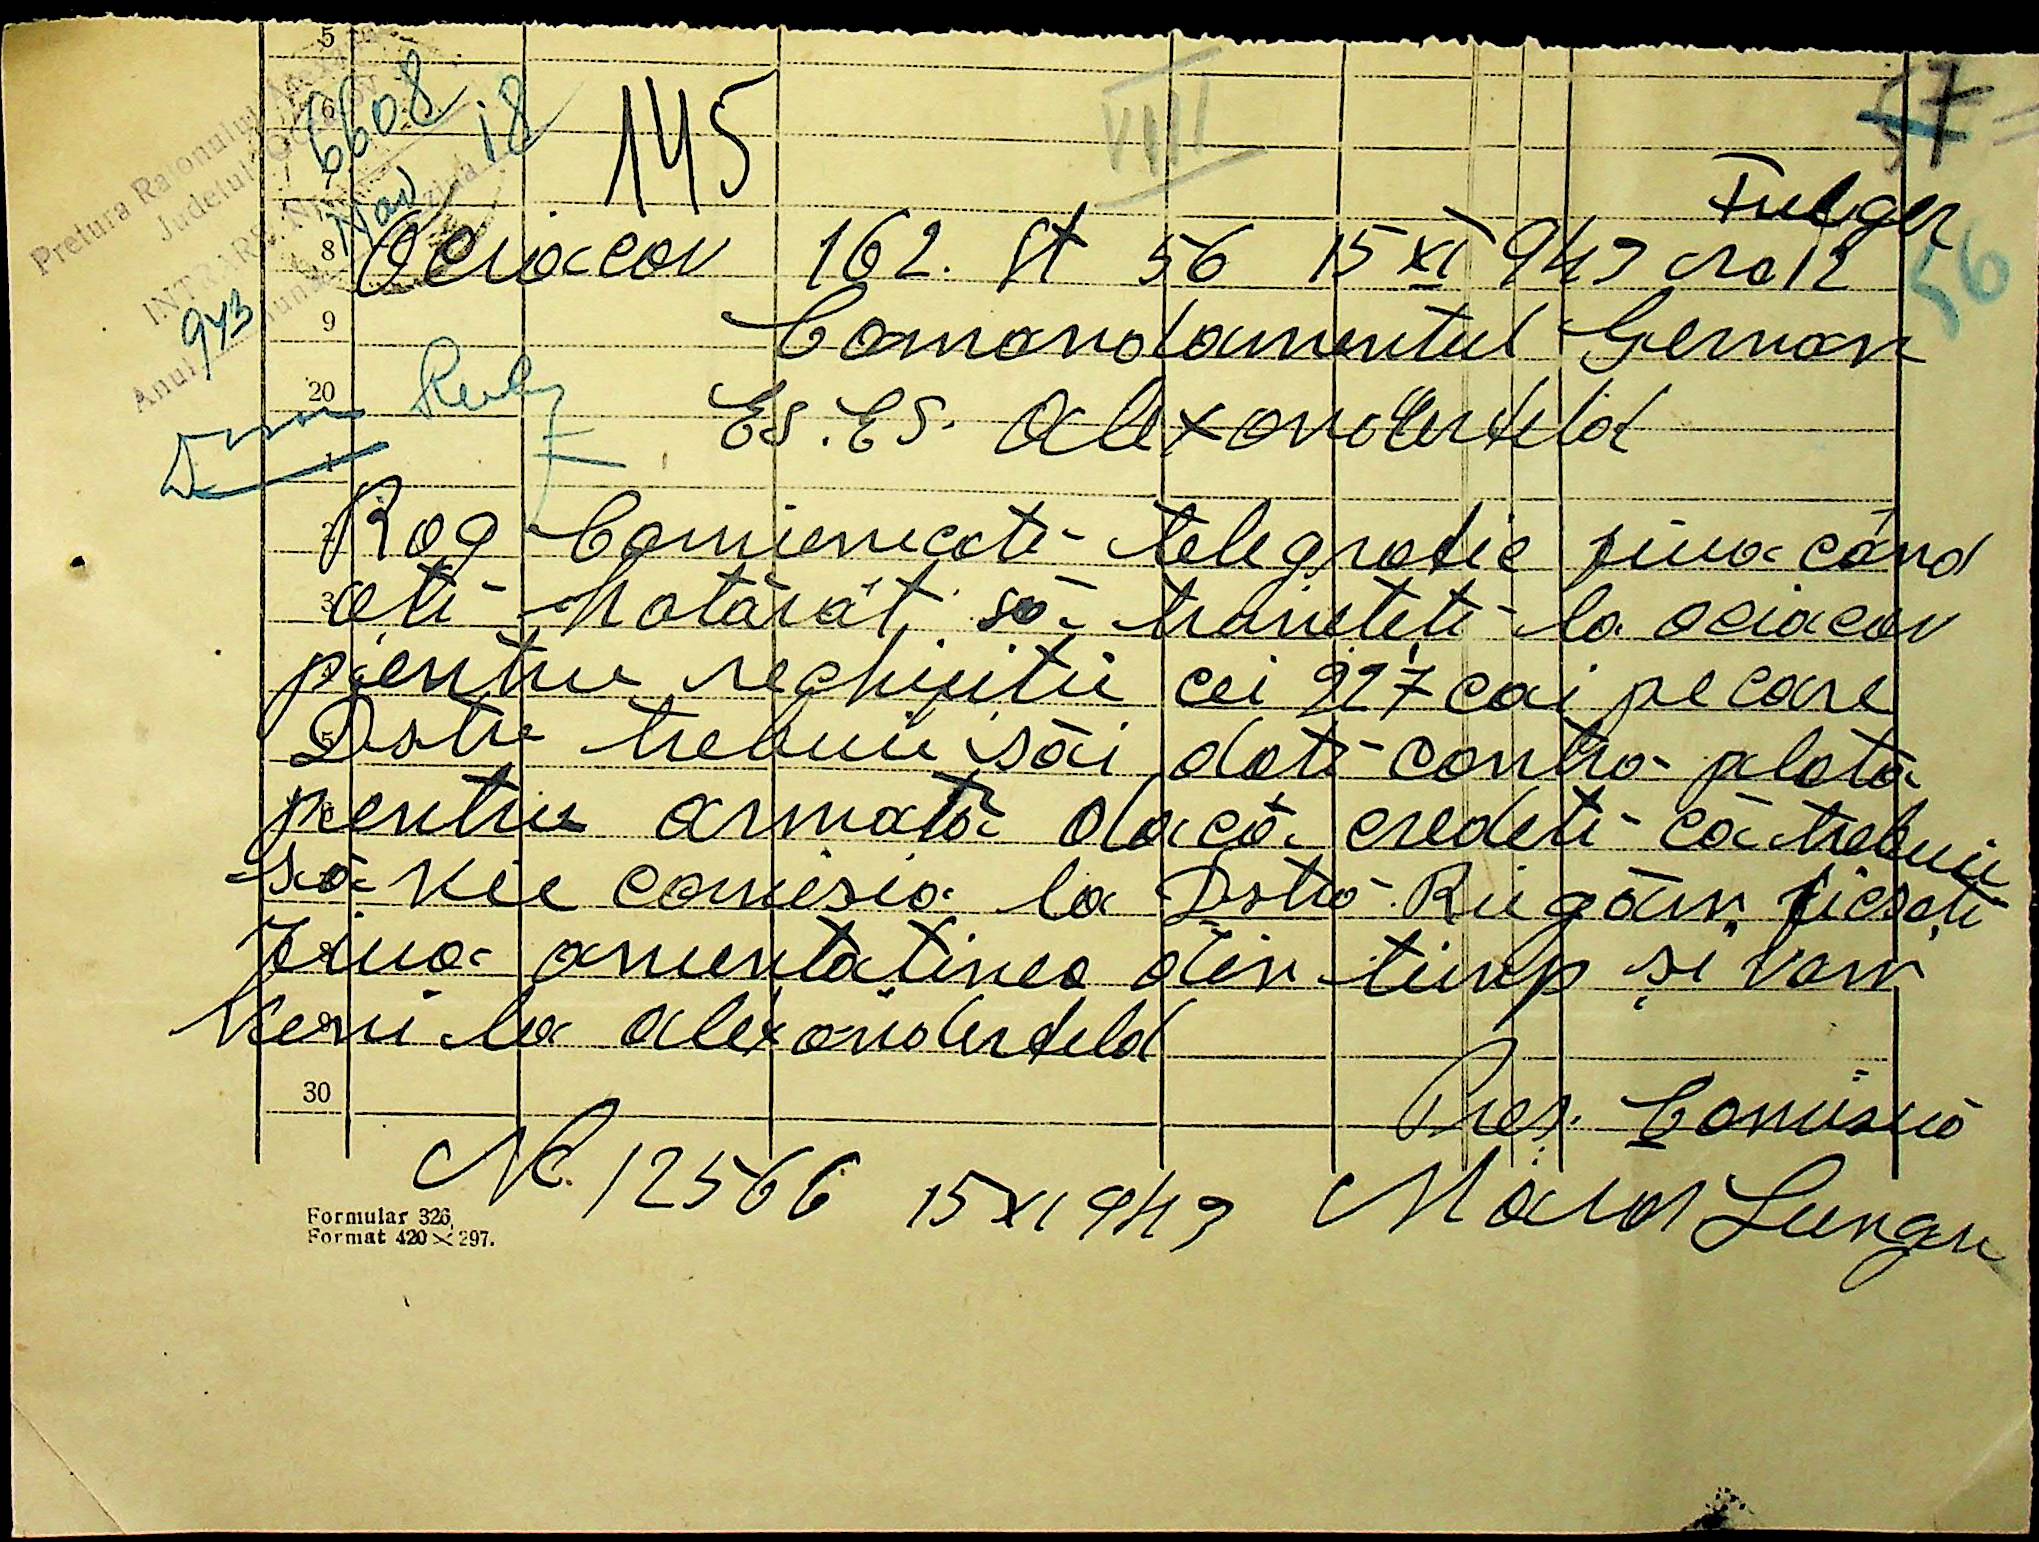 57
5
6
8
9
20
1
30
Pretura Raionului
Judetul
INTRARE N
6608
Nov 18
Anul 943
145
VIII
Fulger
56
Ociacov 162. St 56 15 XI 943 ora 12
Comandamentul German
Es. Es. Alexanderfeld
Rog Comunicati telegrafic ziua când
ati hotărât să trimeteti la Ociacov
pentru rechizitii cei 227 cai pe care
Dstre trebuii săi dati contra plata
pentru armată dacă credeti că trebuii
să vie comisia la Dstră Rugăm ficsati
ziua amentatinea din timp și vom
veni la Alexanderfeld
Pres. Comisiă
Maior Lungu
No. 12566 15 XI 943
Formular 326,
Format 420 × 297.